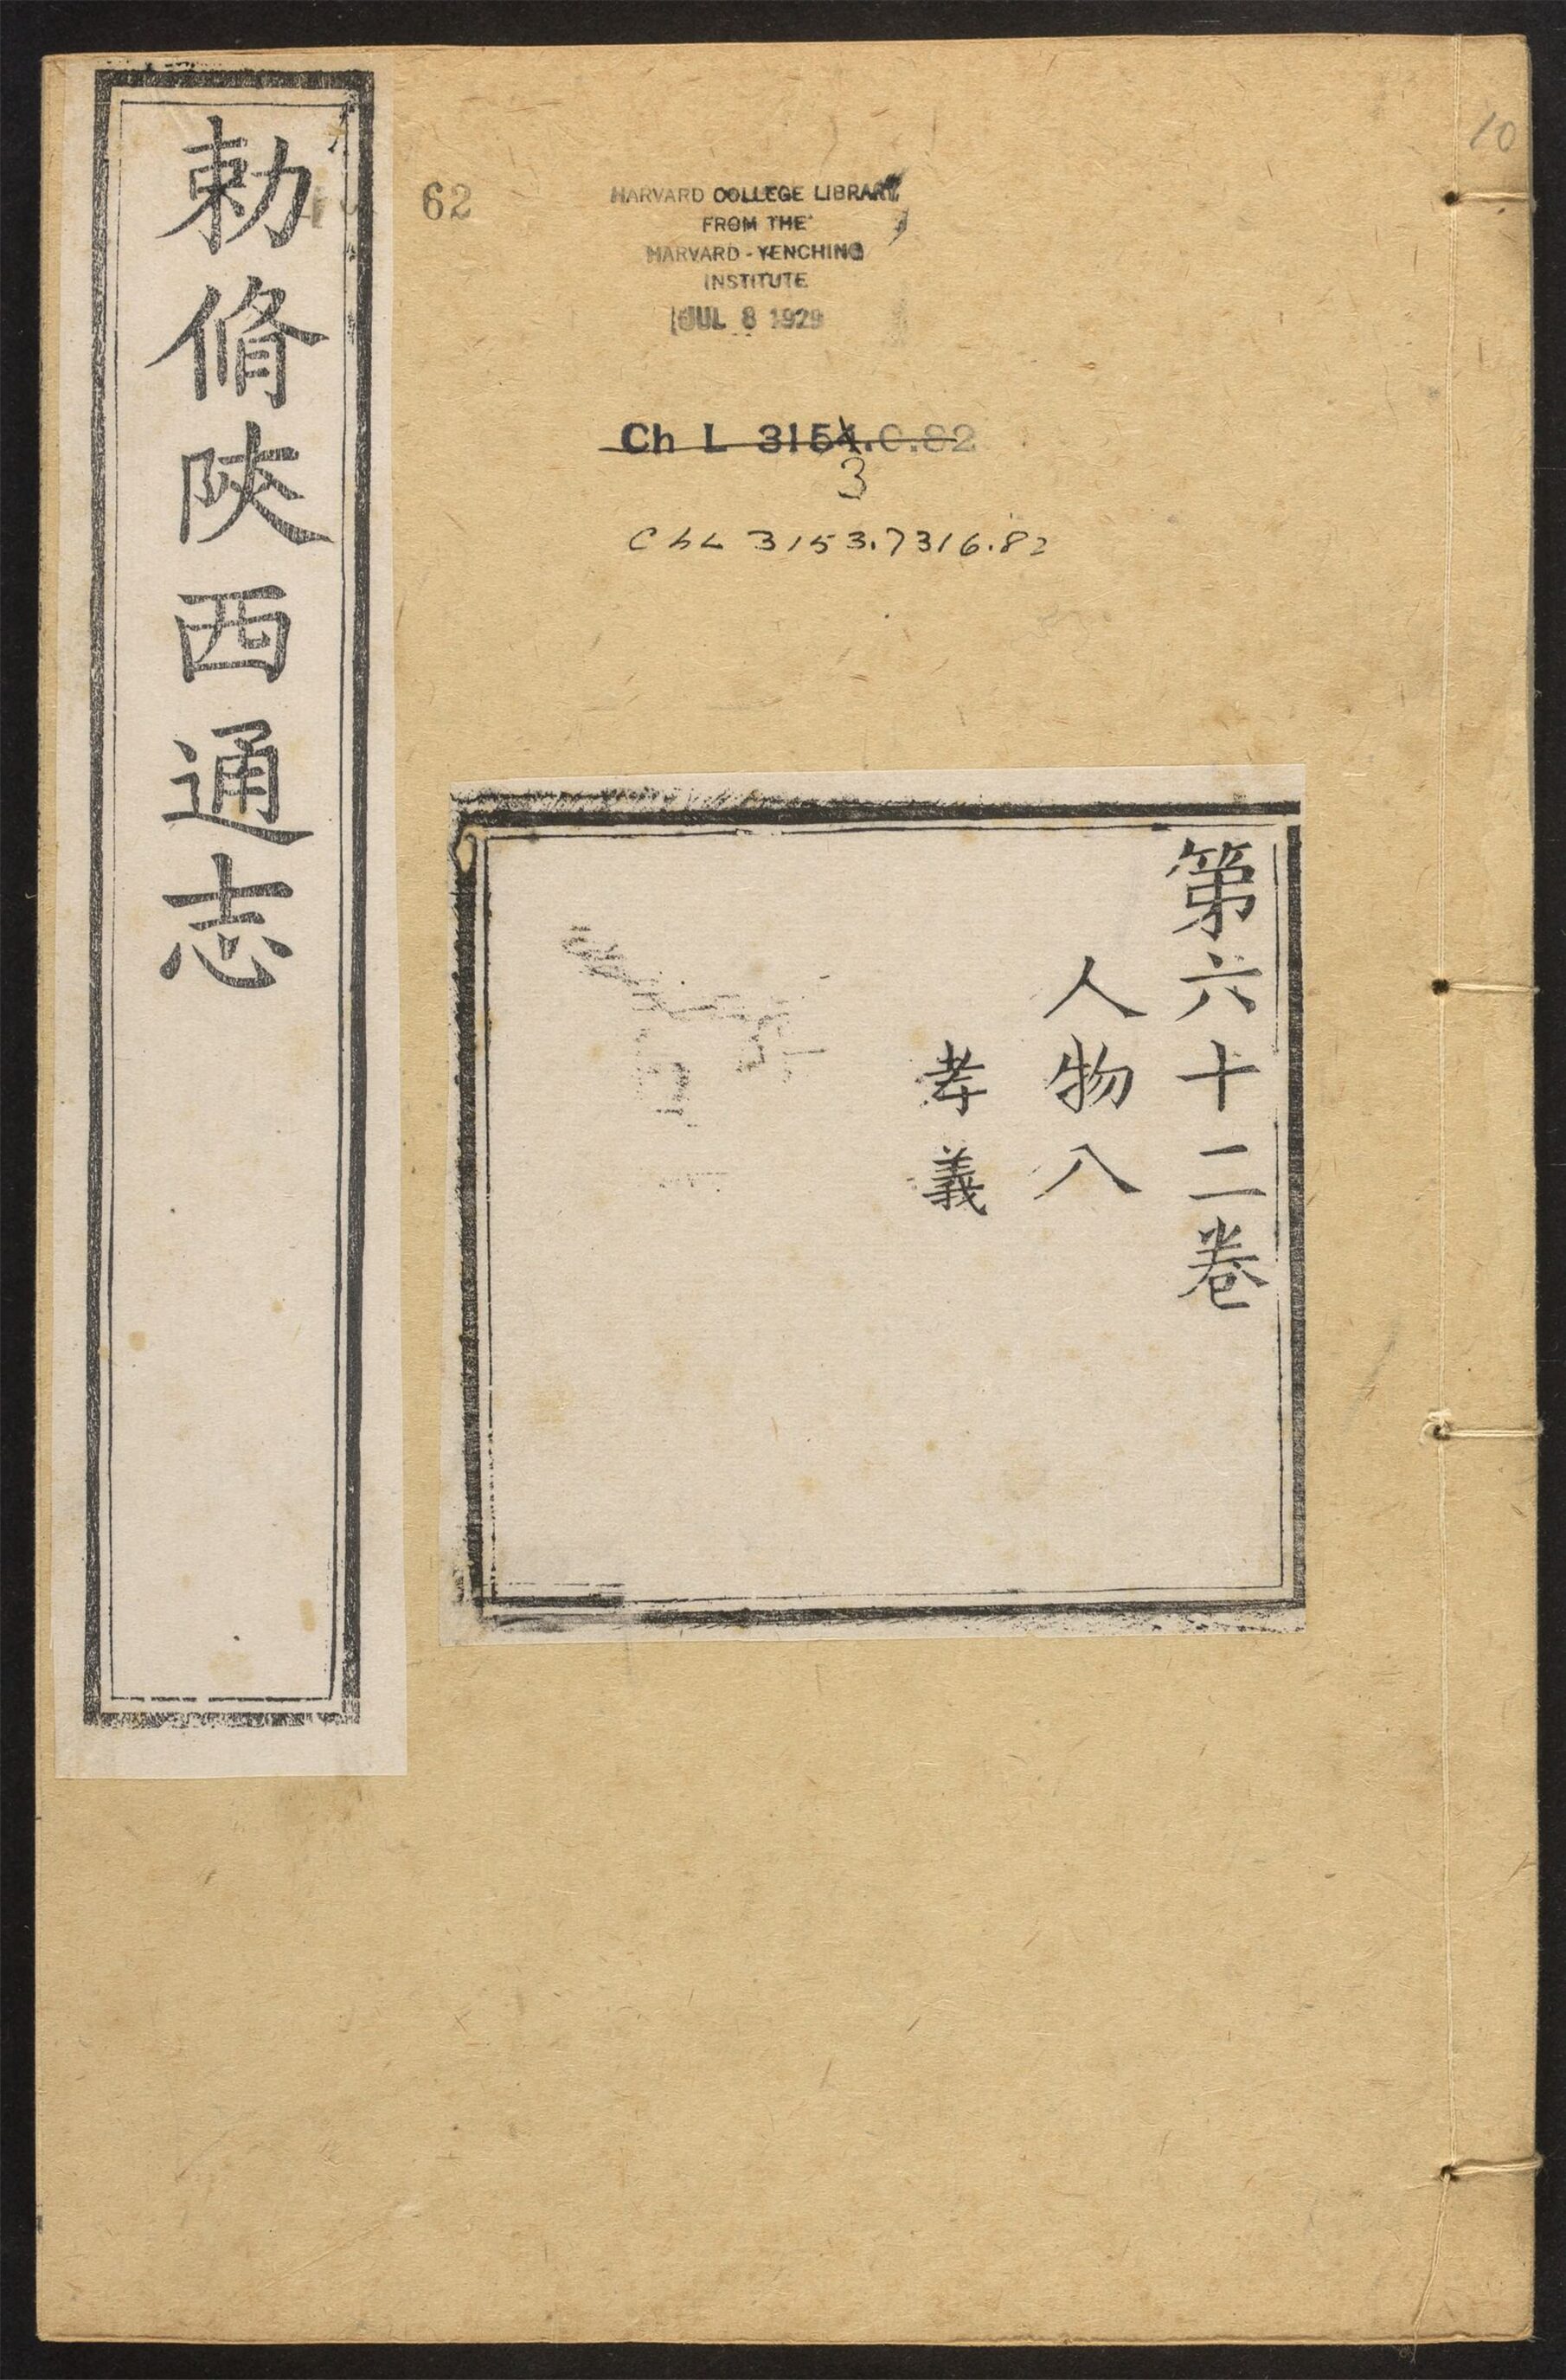 勅脩陜西通志
62
HARVARD COLLEGE LIBRARY
FROM THE
HARVARD-YENCHING
INSTITUTE
JUL 8 1929
Ch L 3154.C.82
3
ChL 3153.7316.82
10
第六十二卷
人物八
孝義